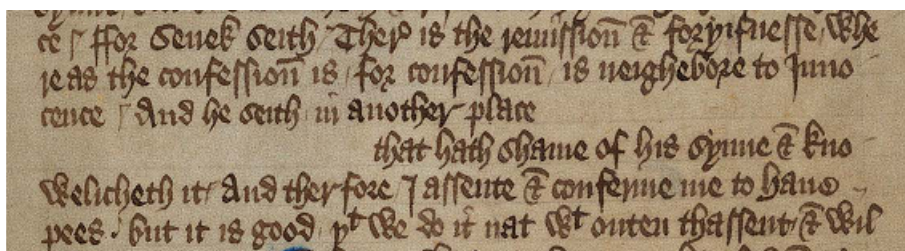 ce / ffor Senek seith Ther is the remissioun & foryifnesse / Whe
re as the confessioun is / for confessioun is neighebore to Inno
cence / And he seith in another place
that hath shame of his synne & kno
welicheth it / And therfore I assente & conferme me to haue
pees . but it is good þt we do it nat wt outen thassent & wil